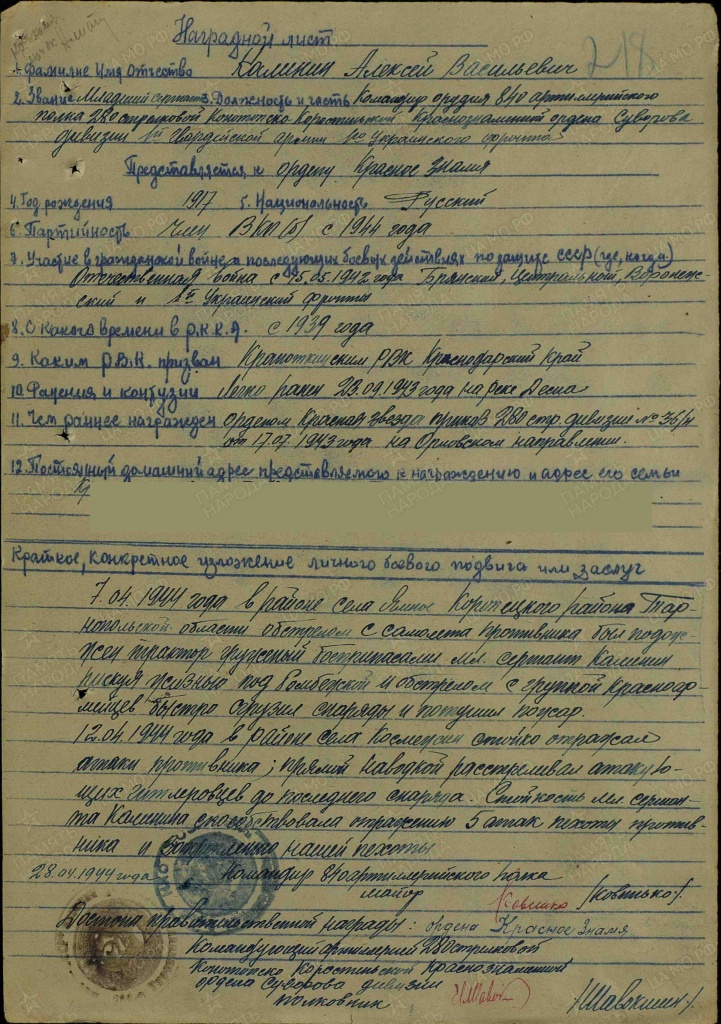 Наградной лист
218
1. Фамилие Имя Отчество Калинин Алексей Васильевич
2. Звание Младший сержант 3. Должность и часть Командир орудия 840 артиллерийского
полка 280 стрелковой Конотопско Коростинской Краснознаменной ордена Суворова
дивизии 1ой Гвардейской армии 1го Украинского фронта
Представляется к ордену Красное Знамя
4. Год рождения 1917 5. Национальность Русский
6. Партийность Член ВКП(б) с 1944 года
7. Участие в гражданской войне и последующих боевых действиях по защите СССР (где, когда)
Отечественная война с 15.05.1942 года Брянский, Центральный, Воронеж-
ский и 1ый Украинский фронты
8. С какого времени в Р.К.К.А. с 1939 года
9. Каким Р.В.К. призван Кропоткинским РВК Краснодарский Край
10. Ранения и контузии Легко ранен 23.09.1943 года на реке Десна
11. Чем раннее награжден орденом Красная Звезда приказ 280 стр. дивизии № 36/н
от 17.07.1943 года на Орловском направлении.
12. Постоянный домашний адрес представляемого к награждению и адрес его семьи
Кр
Краткое, конкретное изложение личного боевого подвига или заслуг
7.04.1944 года в районе села Коропецкого района Тар-
нопольской области обстрелом с самолета противника был подож-
жен трактор груженый боеприпасами мл. сержант Калинин
рискуя жизнью под бомбежкой и обстрелом с группой Красноар-
мейцев быстро сгрузил снаряды и потушил пожар.
12.04.1944 года в районе села стойко отражал
атаки противника; прямой наводкой расстреливал атакую-
щих гитлеровцев до последнего снаряда. Стойкость мл. сержан-
та Калинина способствовала отражению 5 атак пехоты против-
ника и нашей пехоты
28.04.1944 года Командир 840 артиллерийского полка
майор /Ковинько/.
Достоин правительственной награды: ордена Красное Знамя
Командующий артиллерией 280 стрелковой
Конотопско Коростинской Краснознаменной
ордена Суворова дивизии
полковник